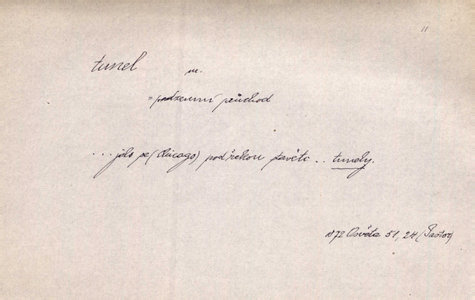 11
tunel m.
= podzemní průchod
... jalo se (Chicago) pod řekou stavěti .. tunely.
1872 Osvěta 51, 24 (Pastor)